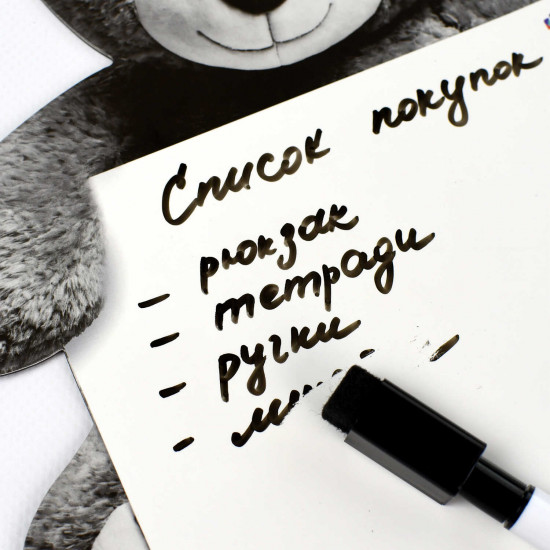 Список покупок
- рюкзак
- тетради
- ручки
-